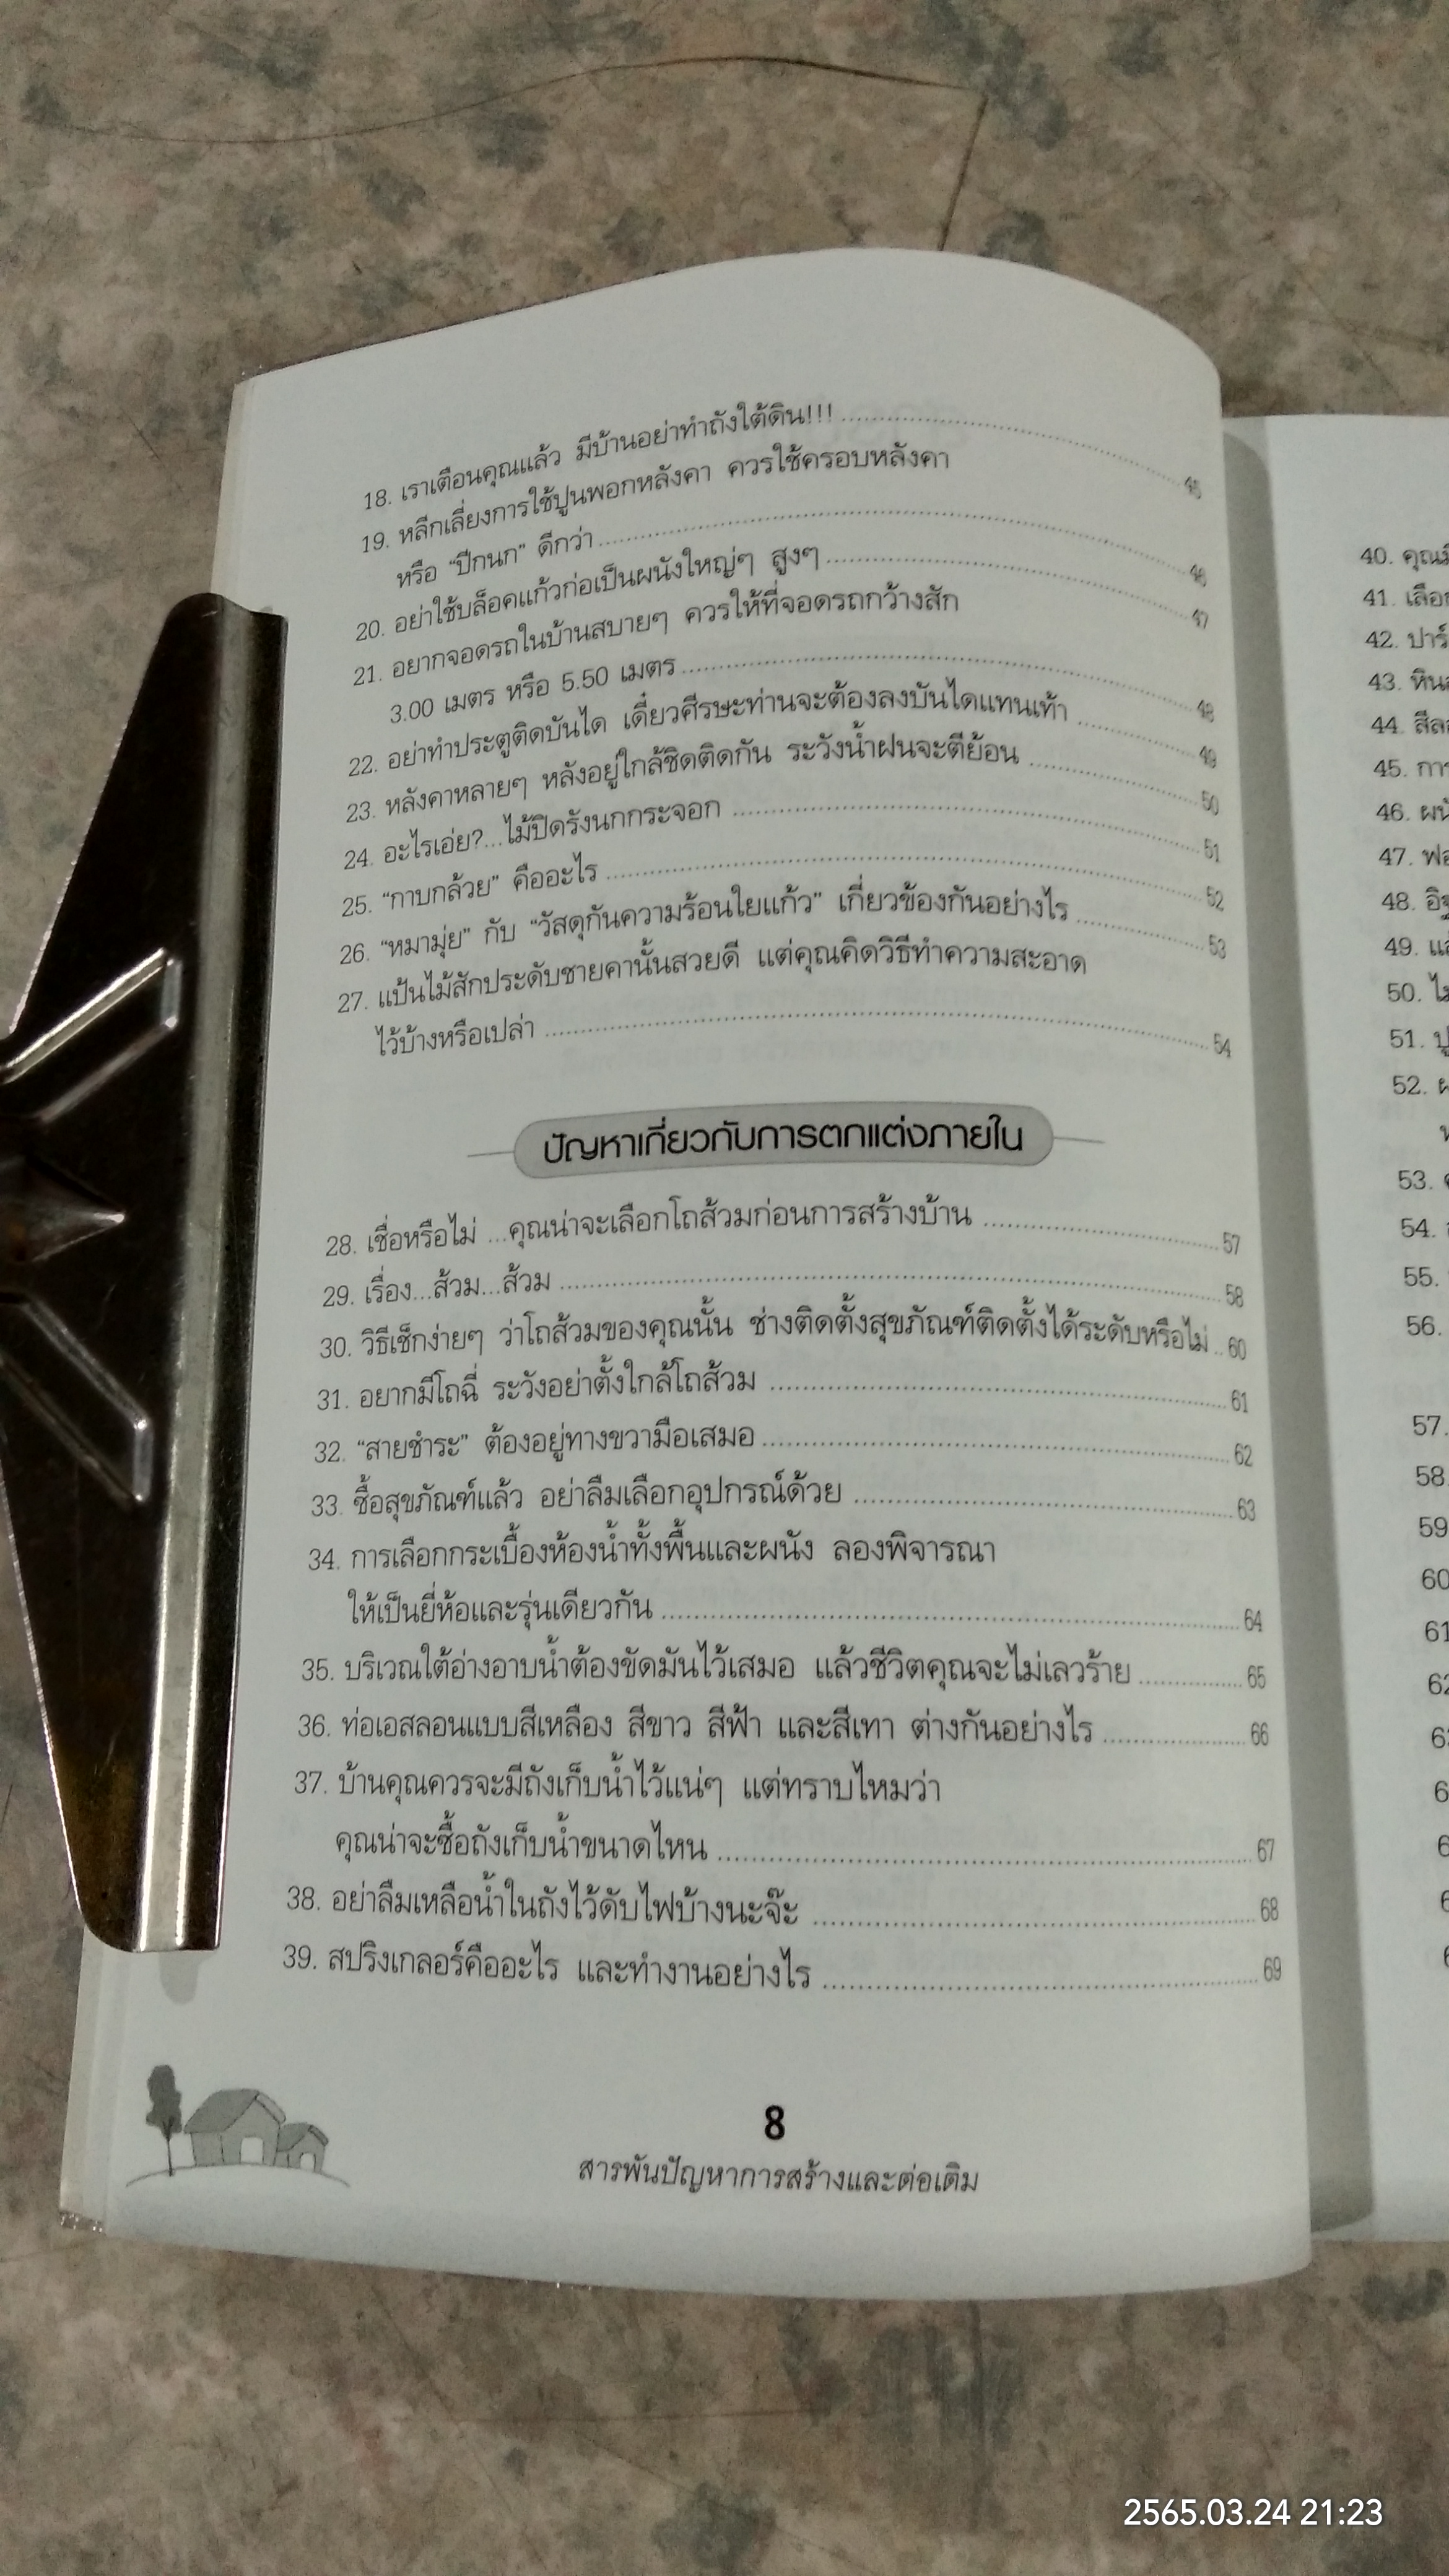 18. เราเตือนคุณแล้ว มีบ้านอย่าทำถังใต้ดิน!!! 45
19. หลีกเลี่ยงการใช้ปูนพอกหลังคา ควรใช้ครอบหลังคา
หรือ “ปีกนก” ดีกว่า 46
20. อย่าใช้บล็อคแก้วก่อเป็นผนังใหญ่ๆ สูงๆ 47
21. อยากจอดรถในบ้านสบายๆ ควรให้ที่จอดรถกว้างสัก
3.00 เมตร หรือ 5.50 เมตร 48
22. อย่าทำประตูติดบันได เดี๋ยวศีรษะท่านจะต้องลงบันไดแทนเท้า 49
23. หลังคาหลายๆ หลังอยู่ใกล้ชิดติดกัน ระวังน้ำฝนจะตีย้อน 50
24. อะไรเอ่ย?...ไม้ปิดรังนกกระจอก 51
25. “กาบกล้วย” คืออะไร 52
26. “หมามุ่ย” กับ “วัสดุกันความร้อนใยแก้ว” เกี่ยวข้องกันอย่างไร 53
27. แป้นไม้สักประดับชายคานั้นสวยดี แต่คุณคิดวิธีทำความสะอาด
ไว้บ้างหรือเปล่า 54
ปัญหาเกี่ยวกับการตกแต่งภายใน
28. เชื่อหรือไม่ ...คุณน่าจะเลือกโถส้วมก่อนการสร้างบ้าน 57
29. เรื่อง...ส้วม...ส้วม 58
30. วิธีเช็กง่ายๆ ว่าโถส้วมของคุณนั้น ช่างติดตั้งสุขภัณฑ์ติดตั้งได้ระดับหรือไม่ 60
31. อยากมีโถฉี่ ระวังอย่าตั้งใกล้โถส้วม 61
32. “สายชำระ” ต้องอยู่ทางขวามือเสมอ 62
33. ซื้อสุขภัณฑ์แล้ว อย่าลืมเลือกอุปกรณ์ด้วย 63
34. การเลือกกระเบื้องห้องน้ำทั้งพื้นและผนัง ลองพิจารณา
ให้เป็นยี่ห้อและรุ่นเดียวกัน 64
35. บริเวณใต้อ่างอาบน้ำต้องขัดมันไว้เสมอ แล้วชีวิตคุณจะไม่เลวร้าย 65
36. ท่อเอสลอนแบบสีเหลือง สีขาว สีฟ้า และสีเทา ต่างกันอย่างไร 66
37. บ้านคุณควรจะมีถังเก็บน้ำไว้แน่ๆ แต่ทราบไหมว่า
คุณน่าจะซื้อถังเก็บน้ำขนาดไหน 67
38. อย่าลืมเหลือน้ำในถังไว้ดับไฟบ้างนะจ๊ะ 68
39. สปริงเกลอร์คืออะไร และทำงานอย่างไร 69
8
สารพันปัญหาการสร้างและต่อเติม
40.
41.
42.
43.
44.
45.
46.
47.
48.
49.
50.
51.
52.
53.
54.
55.
56.
57.
58.
59
60
61
2565.03.24 21:23